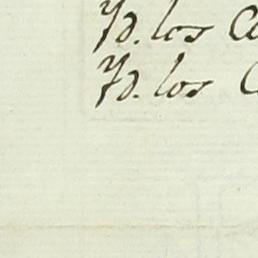 Yd. los
Yd. los